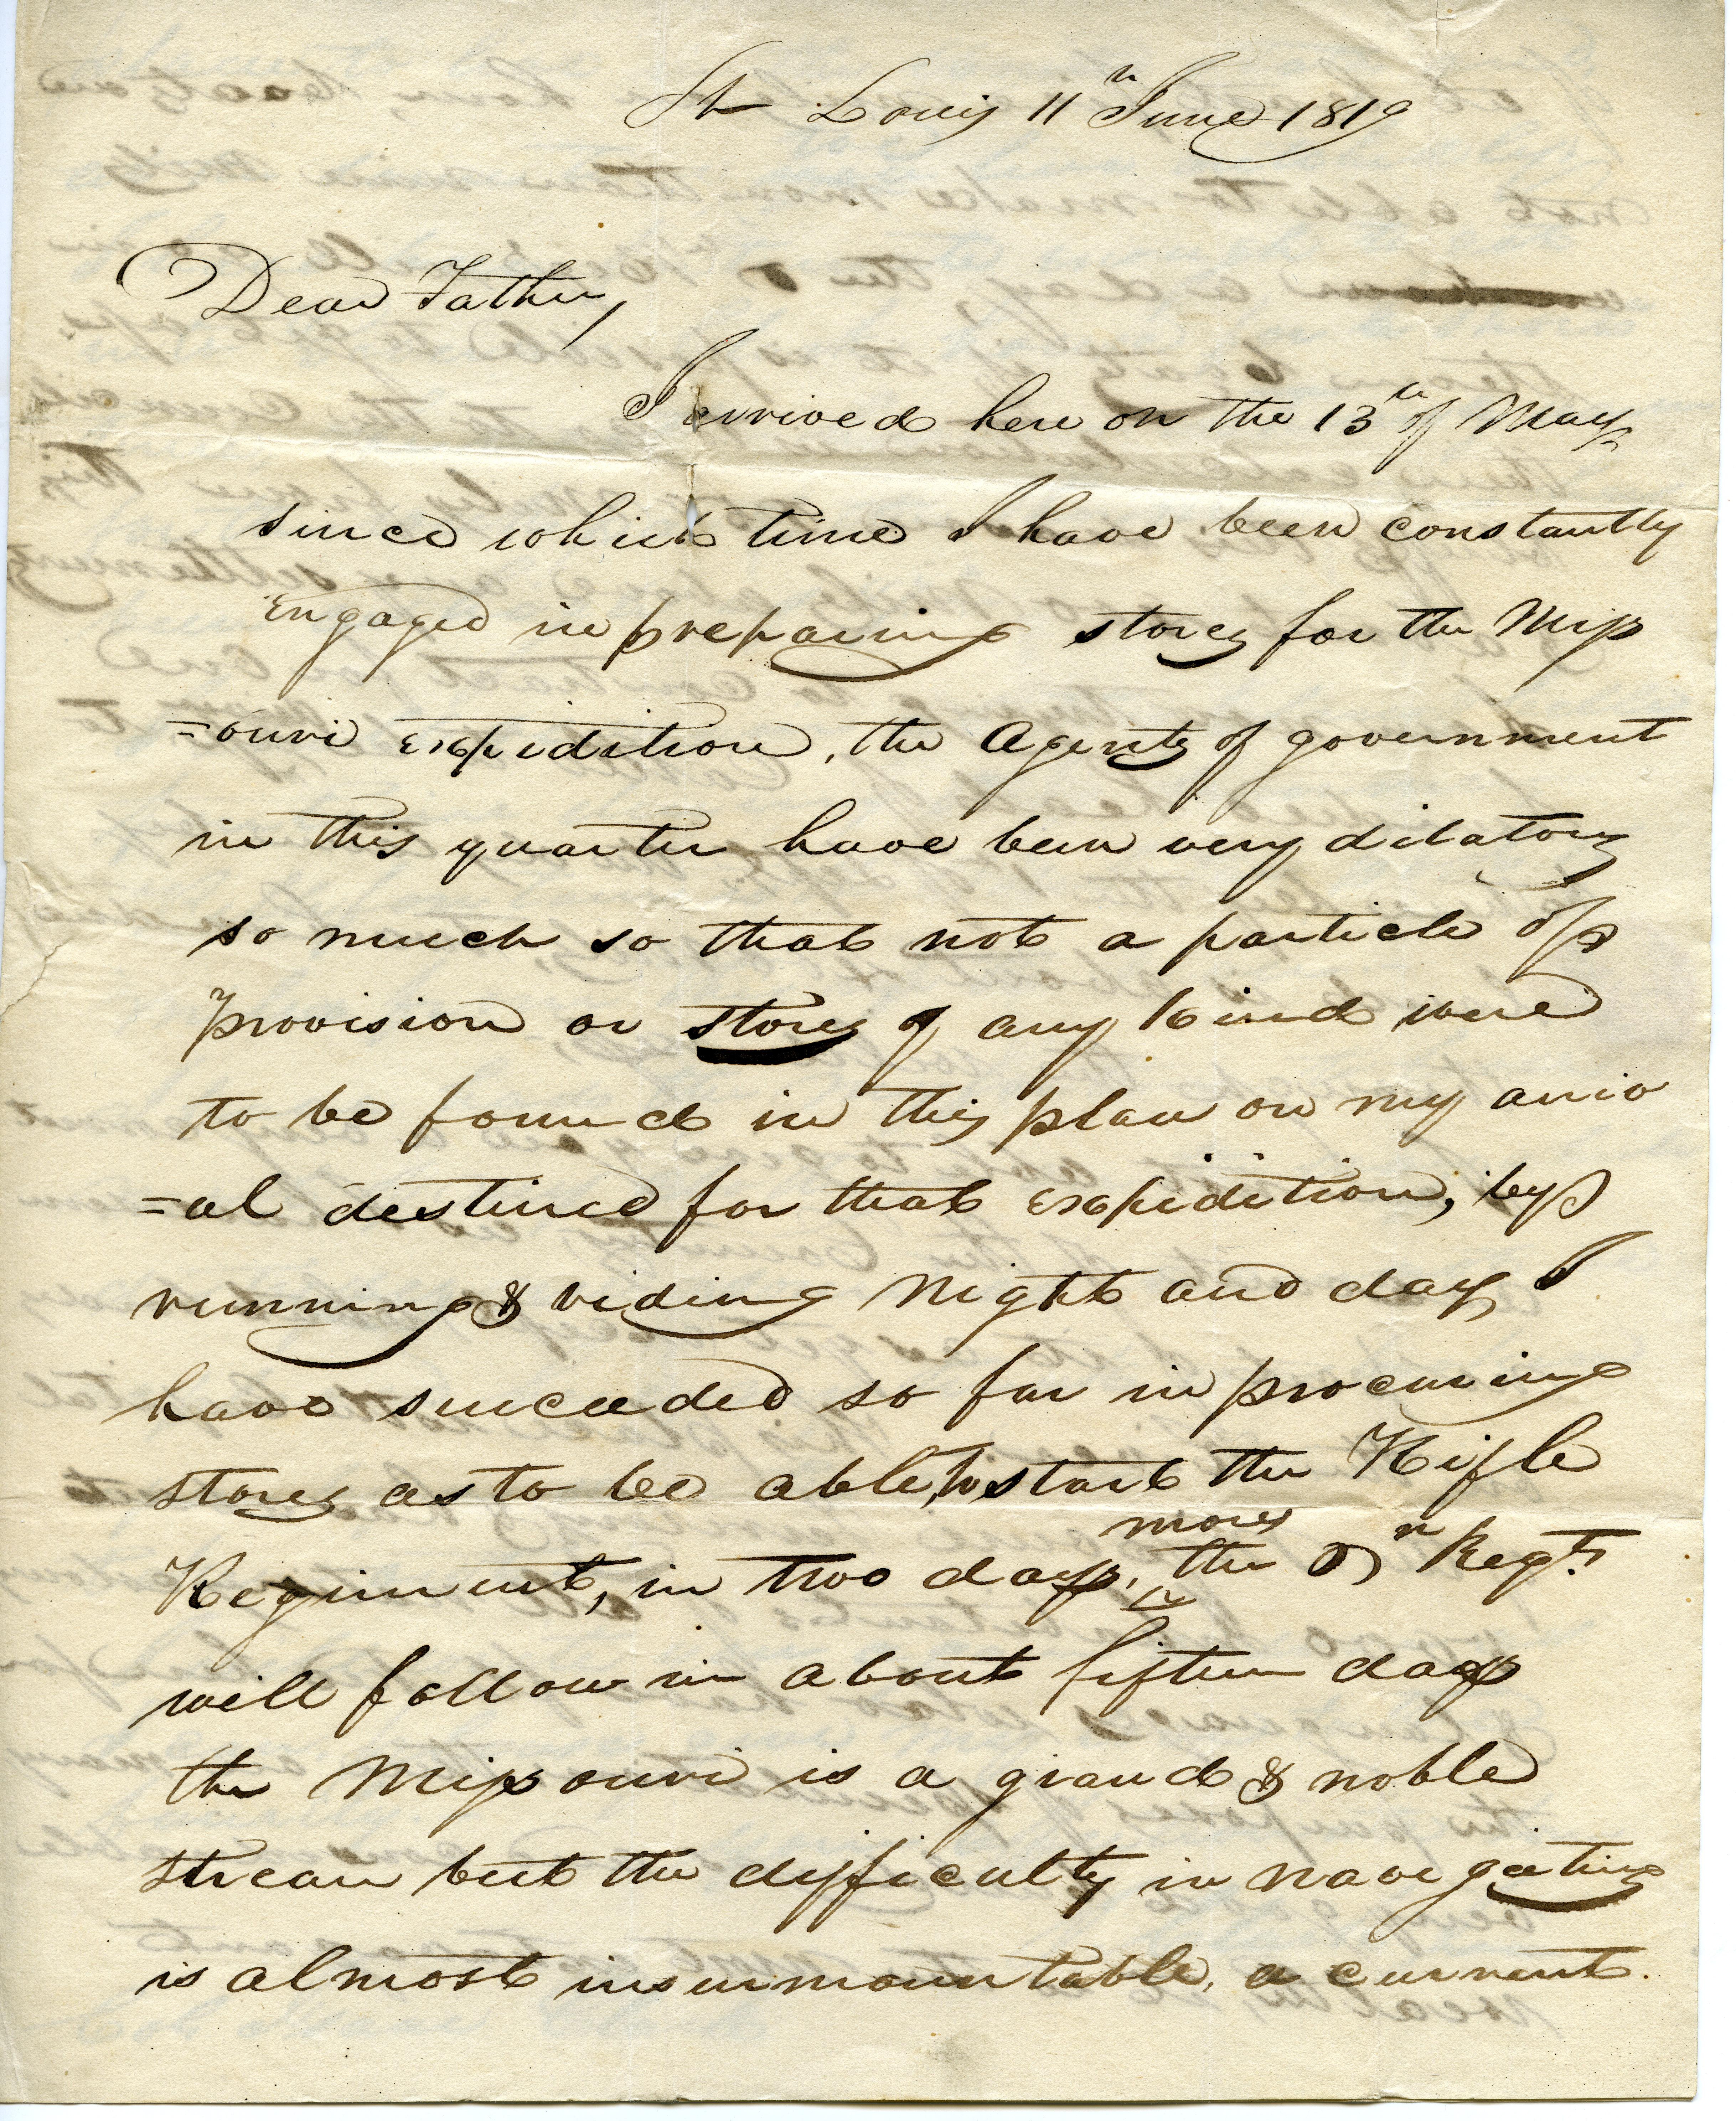 St Louis 11th June 1819
Dear Father,
I arrived here on the 13th of May
since which time I have been constantly
engaged in preparing stores for the Miss
=ouri expidition, the Agents of government
in this quarter have been very dilatory
so much so that not a particle of
provision or stores of any kind were
to be found in this place on my arriv
=al destined for that expidition, by
running & riding Night and day I
have succeeded so far in procuring
stores as to be able to start the Rifle
Regiment, in two days more, the 6th Regt.
will follow in about fifteen days
the Missouri is a grand & noble
stream but the difficulty in navegating
is almost insurmountable, a current